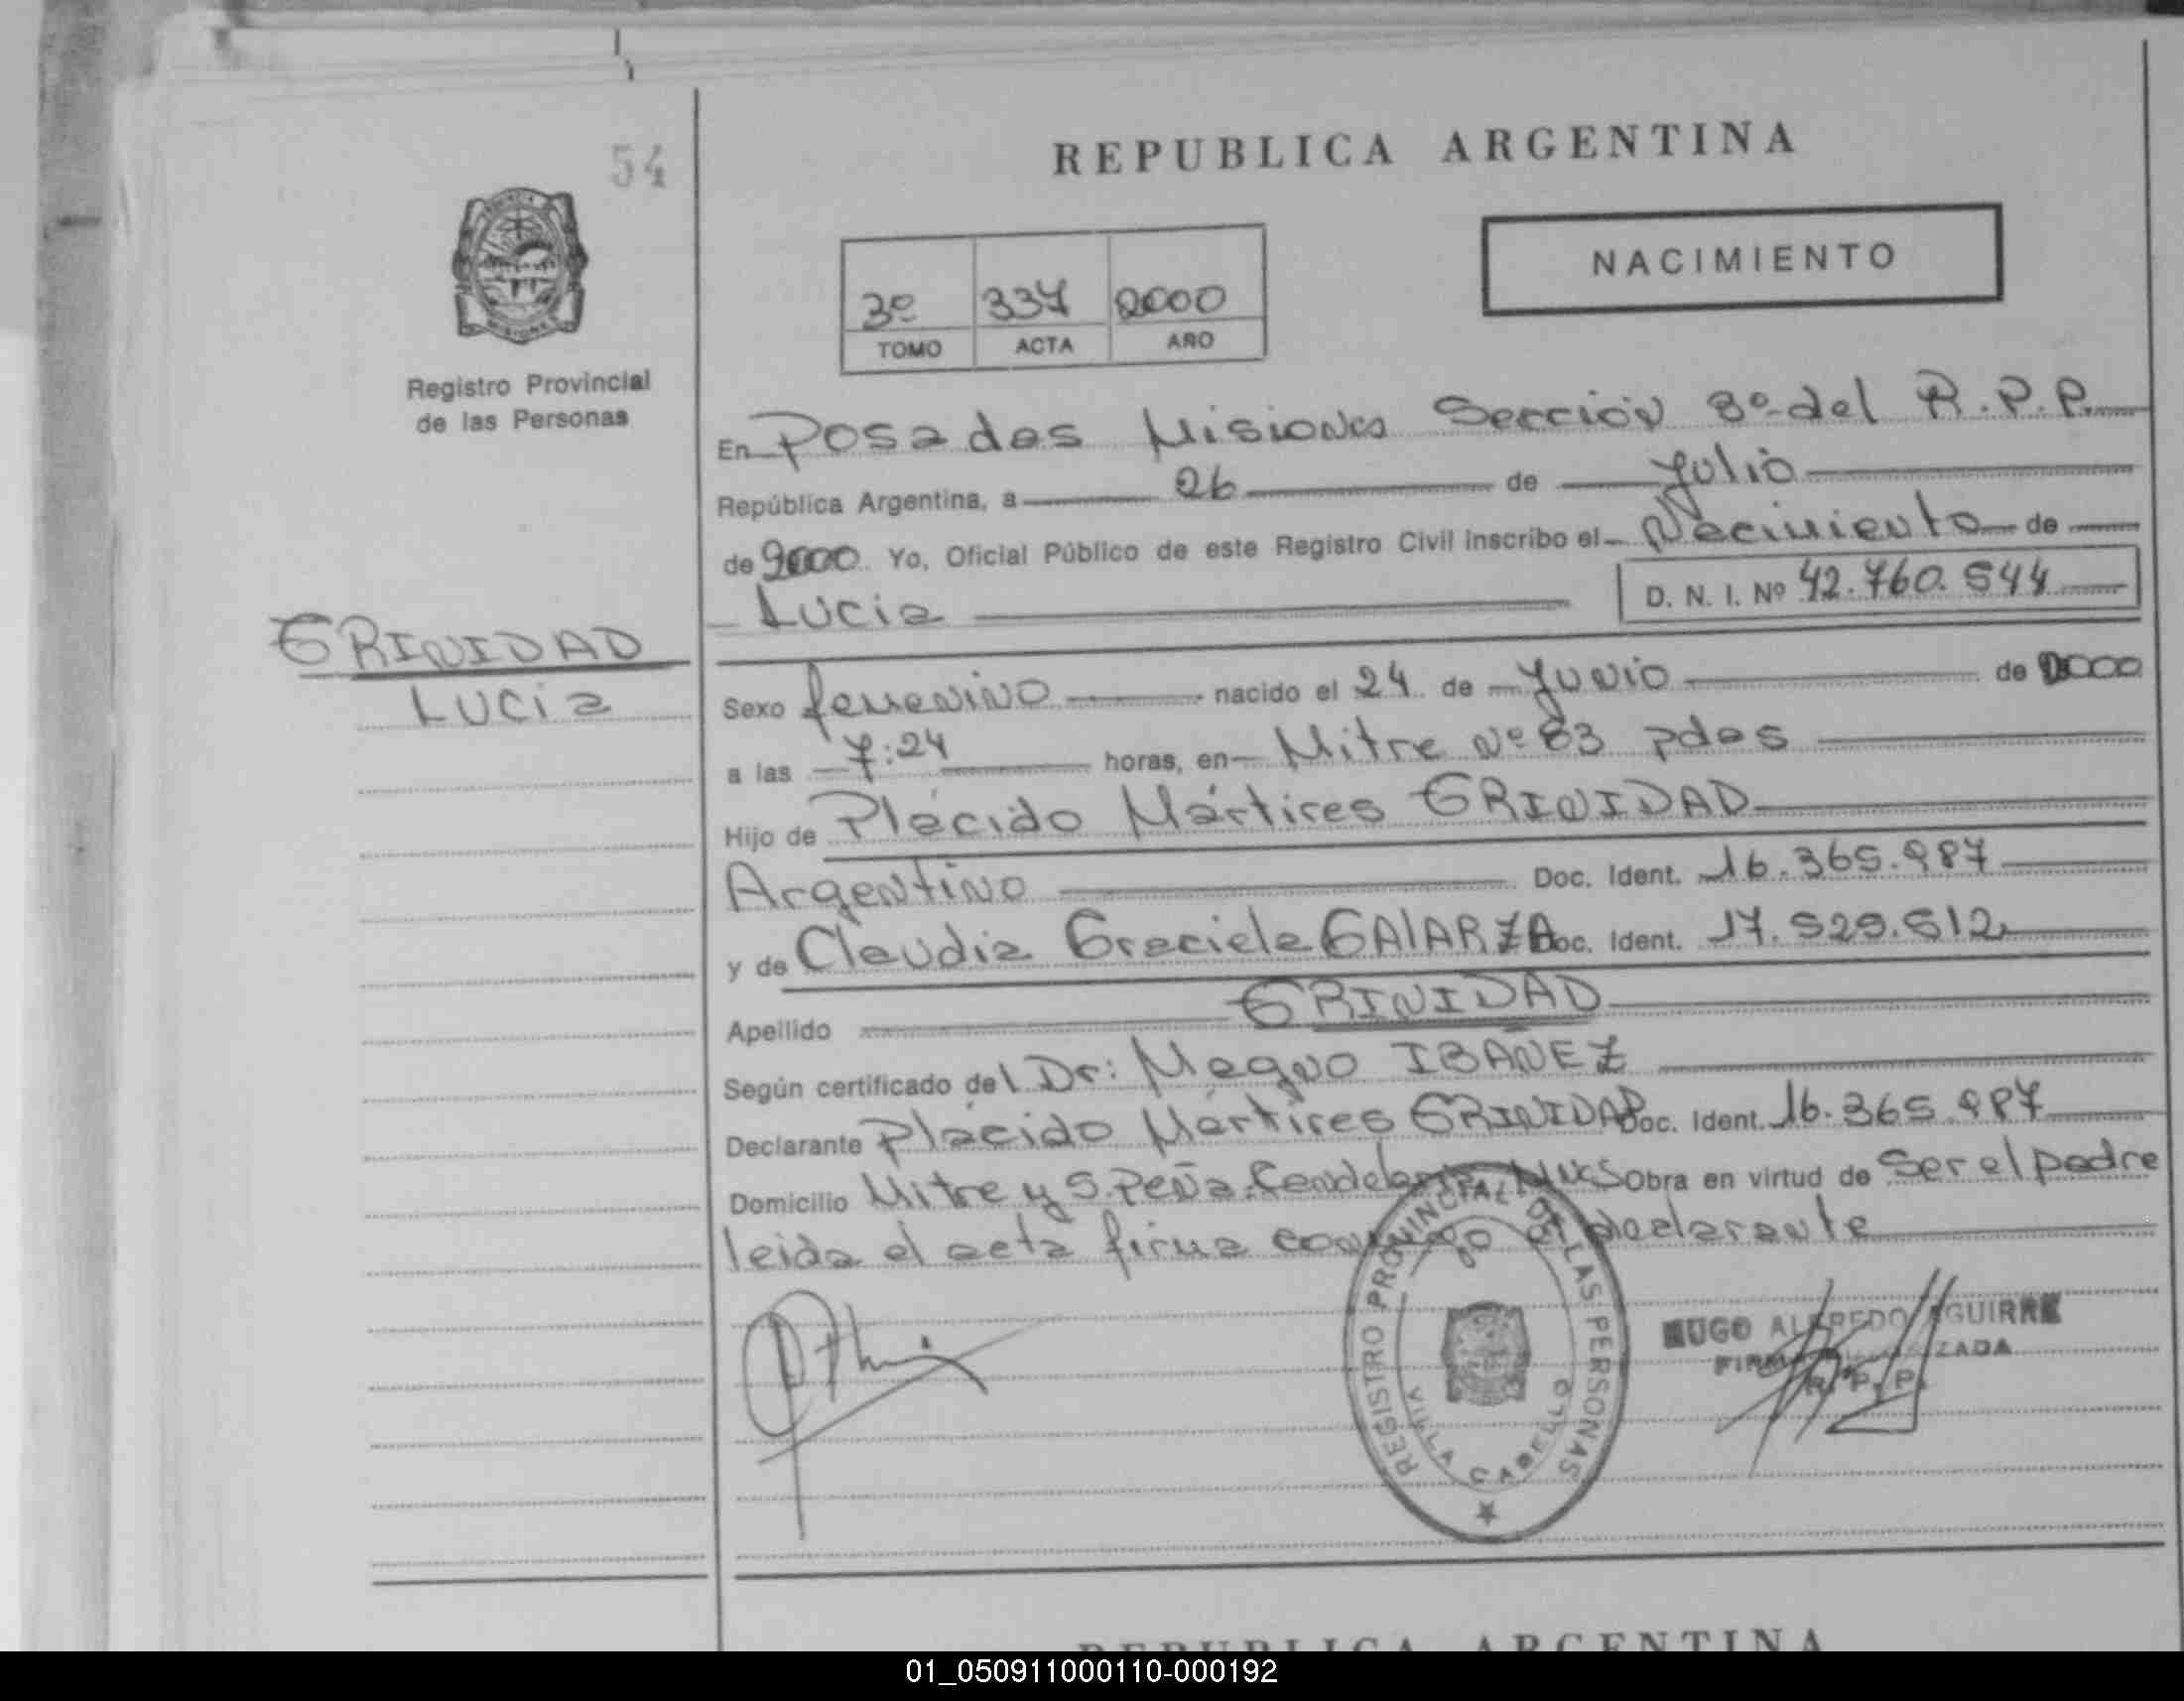 54
REPUBLICA ARGENTINA
NACIMIENTO
3º 337 2000
TOMO ACTA AÑO
Registro Provincial
de las Personas
En Posadas Misiones Sección 8º del R.P.P.
República Argentina, a 26 de Julio
de 2000 Yo, Oficial Público de este Registro Civil inscribo el Nacimiento de
Lucia D. N. I. Nº 42.760.544
GRINIDAD
Lucia
Sexo femenino nacido el 24 de Junio de 2000
a las 7:24 horas, en Mitre Nº 83 pdas
Hijo de Plácido Mártires GRINIDAD
Argentino Doc. Ident. 16.365.987
y de Claudia Graciela GALARZA Doc. Ident. 17.529.512
Apellido GRINIDAD
Según certificado del Dr: Magno IBAÑEZ
Declarante Plácido Mártires GRINIDAD Doc. Ident. 16.365.987
Domicilio Mitre y S. Peña. Candelaria Mnes Obra en virtud de Ser el padre
leida el acta firma conmigo el declarante
REGISTRO PROVINCIAL DE LAS PERSONAS
VILLA CABELLO
HUGO ALFREDO AGUIRRE
R. P. P.
REPUBLICA ARGENTINA
01_050911000110-000192